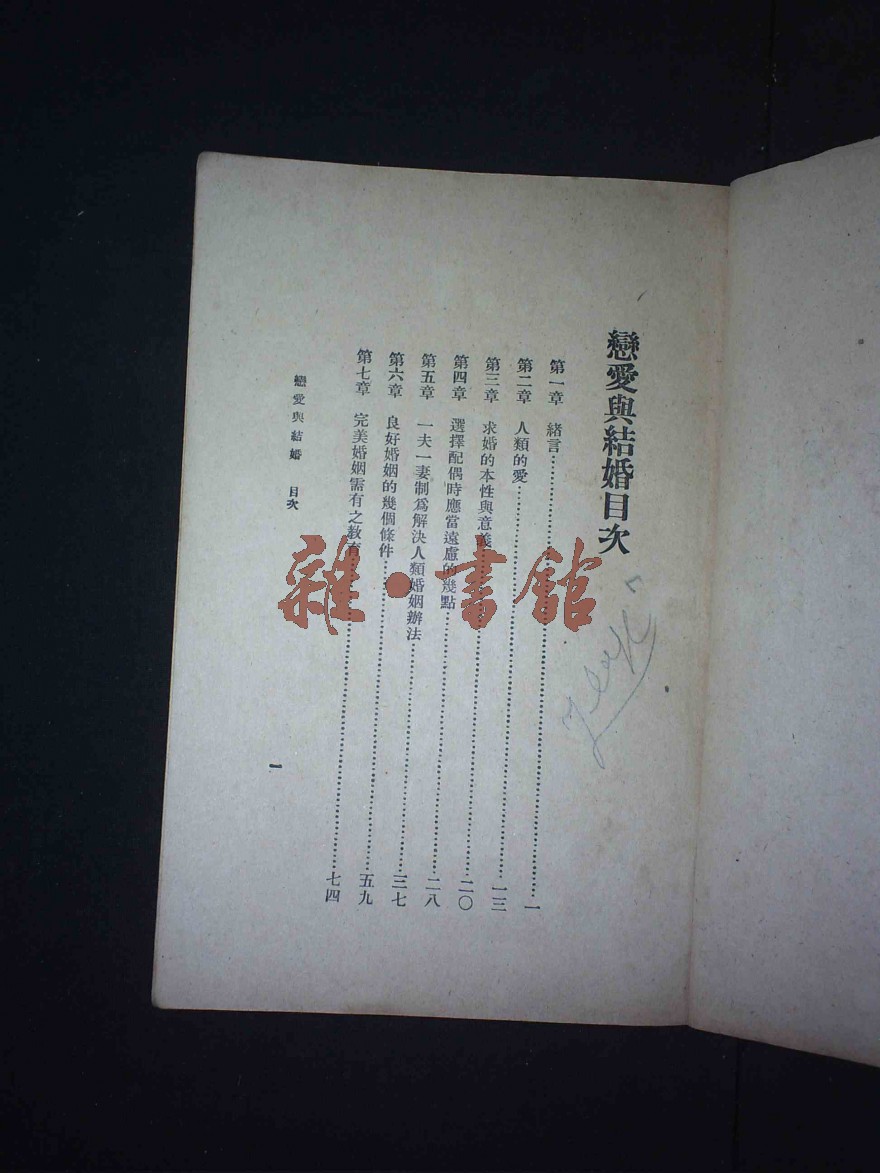 戀愛與結婚目次
第一章 緒言……一
第二章 人類的愛……一三
第三章 求婚的本性與意義……二〇
第四章 選擇配偶時應當遠慮的幾點……二八
第五章 一夫一妻制爲解決人類婚姻辦法……三七
第六章 良好婚姻的幾個條件……五九
第七章 完美婚姻需有之教育……七四
戀愛與結婚 目次
一
雜·書館